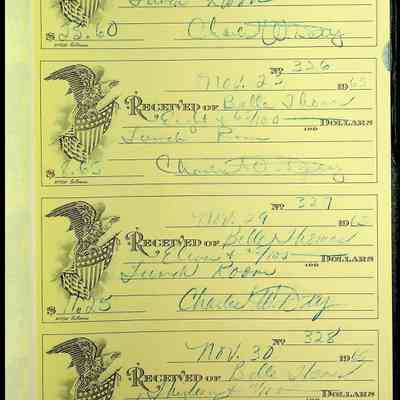 Lunch Room
$22.60 Charles W. Day
No 326
Nov. 23 1962
RECEIVED OF Belle Thomas
Eight & 60/100 DOLLARS
Lunch Room
Charles W. Day
No 327
Nov. 29 1962
RECEIVED OF Belle Thomas
Eleven & /100 DOLLARS
Lunch Room
$11.25 Charles W. Day
No 328
Nov. 30 196
RECEIVED OF Belle Thomas
/100 DOLLARS